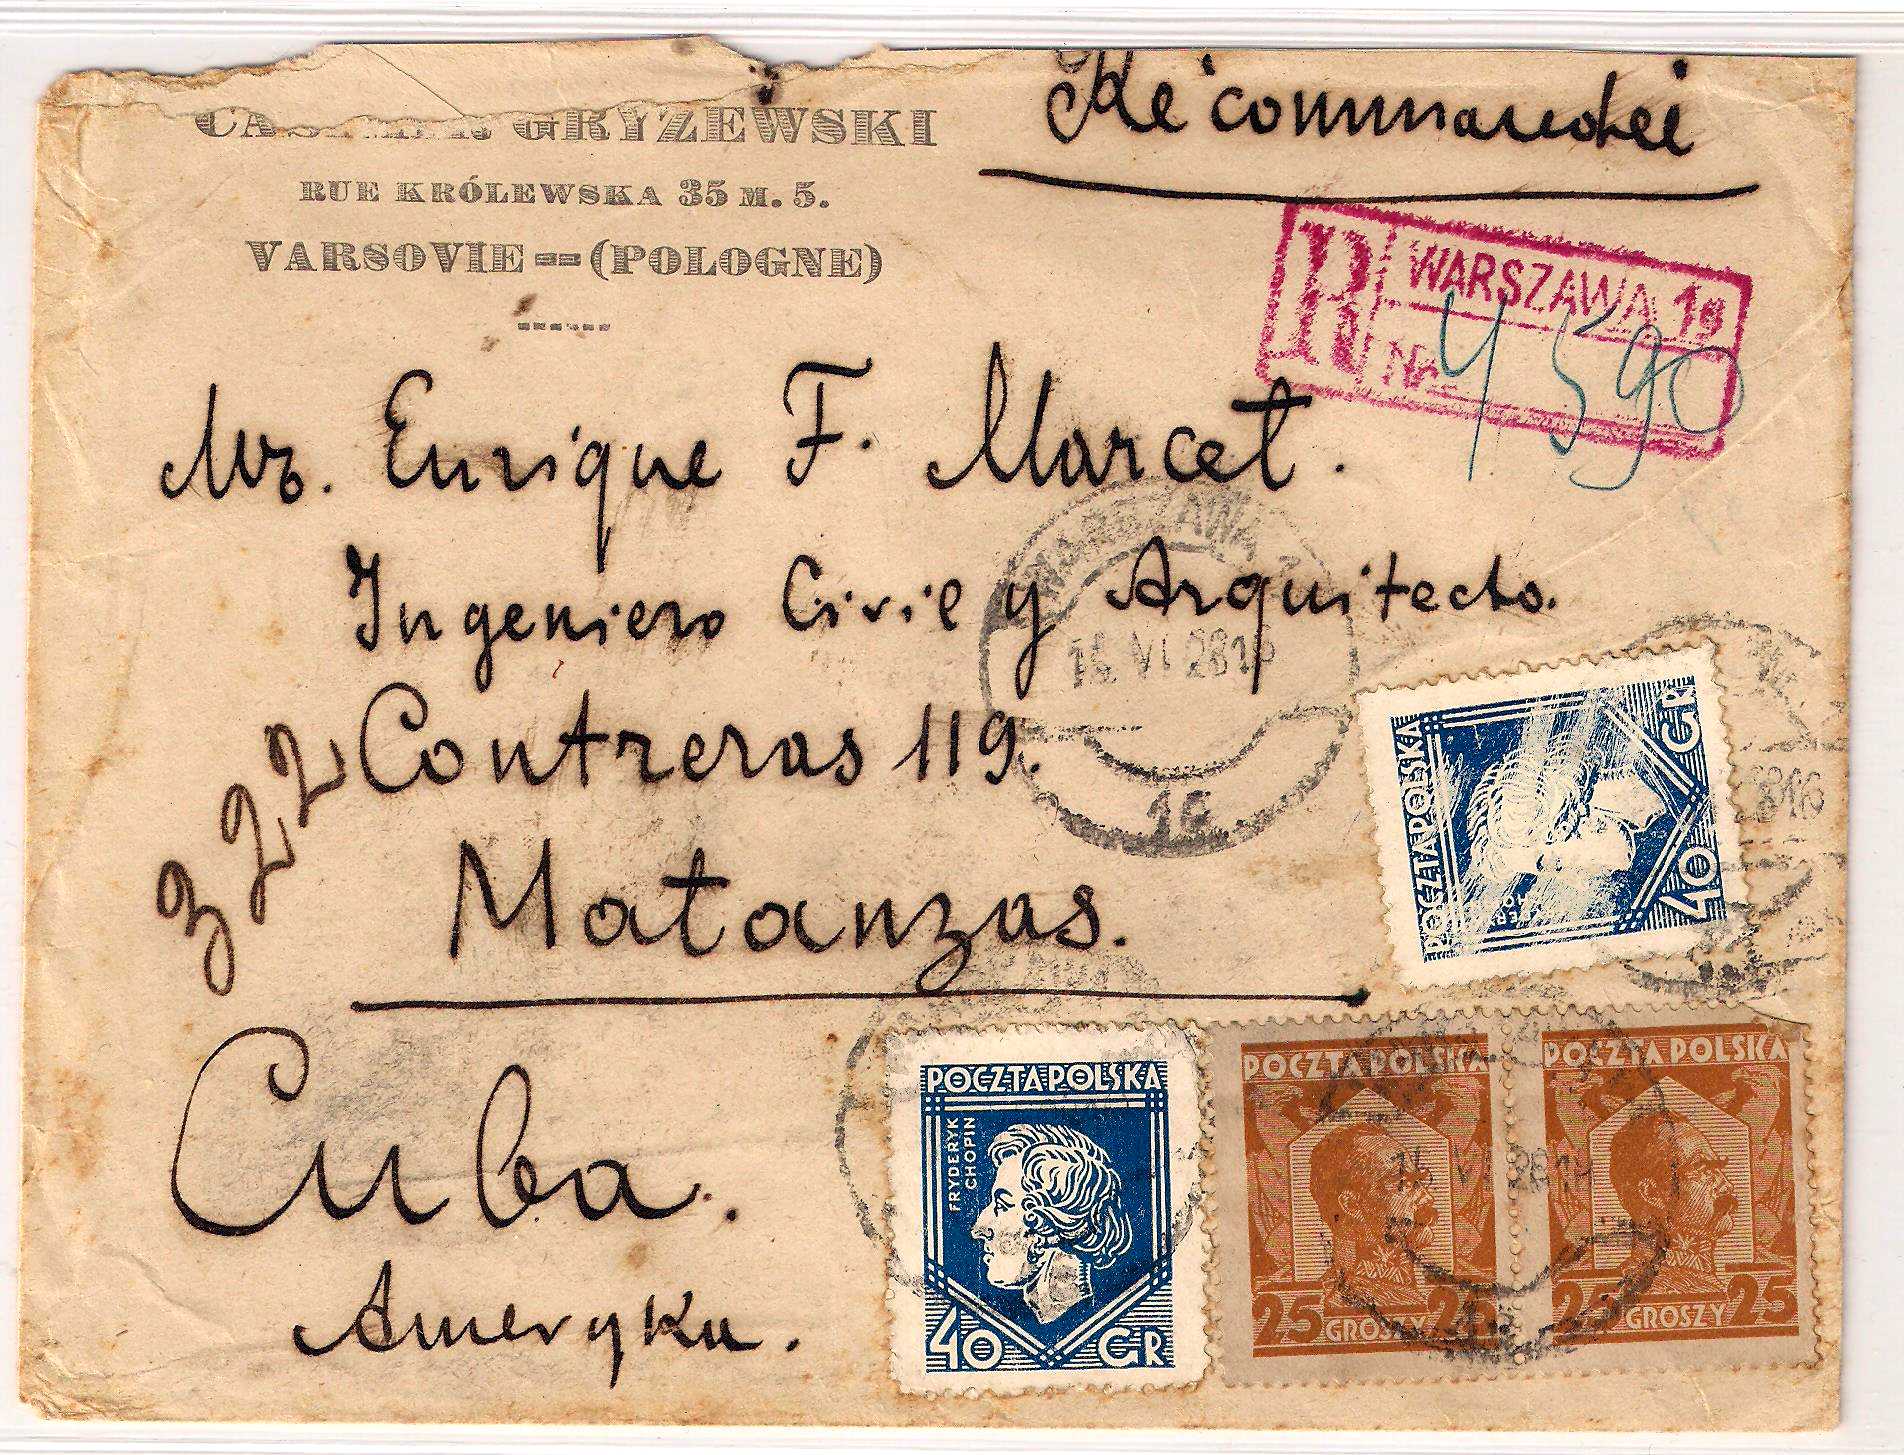 GRYZEWSKI
RUE KRÓLEWSKA 35 M. 5.
VARSOVIE == (POLOGNE)
Recommandeé
R WARSZAWA 19
Nr. 4590
Mr. Enrique F. Marcet.
Ingeniero Civil y Arquitecto.
Contreras 119.
322
Matanzas.
Cuba.
Ameryka.
WARSZAWA
VI 28
POCZTA POLSKA
40 GR
POCZTA POLSKA
FRYDERYK
CHOPIN
40 GR
POCZTA POLSKA
25 GROSZY 25
POCZTA POLSKA
25 GROSZY 25